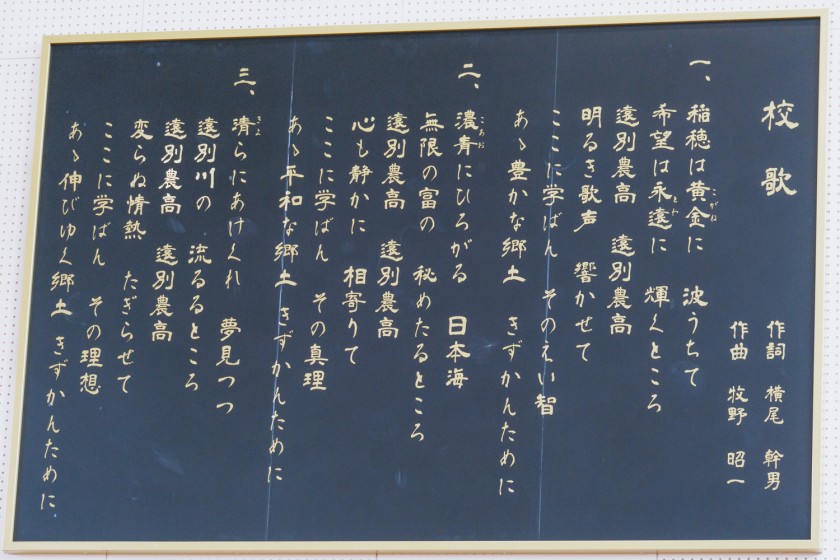 校歌
作詞 横尾 幹男
作曲 牧野 昭一
一、
稲穂は黄金に 波うちて
こがね
希望は永遠に 輝くところ
とわ
遠別農高 遠別農高
明るき歌声 響かせて
ここに学ばん そのえい智
あゝ豊かな郷土 きずかんために
二、
濃青にひろがる 日本海
こあお
無限の富の 秘めたるところ
遠別農高 遠別農高
心も静かに 相寄りて
ここに学ばん その真理
あゝ平和な郷土 きずかんために
三、
清らにあけくれ 夢見つつ
きよ
遠別川の 流るるところ
遠別農高 遠別農高
変らぬ情熱 たぎらせて
ここに学ばん その理想
あゝ伸びゆく郷土 きずかんために.